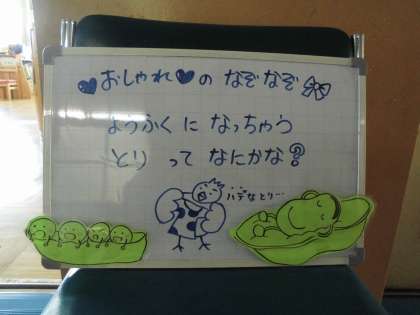 おしゃれ♥の なぞなぞ
ようふくに なっちゃう
とり って なにかな?
ハデなとり…